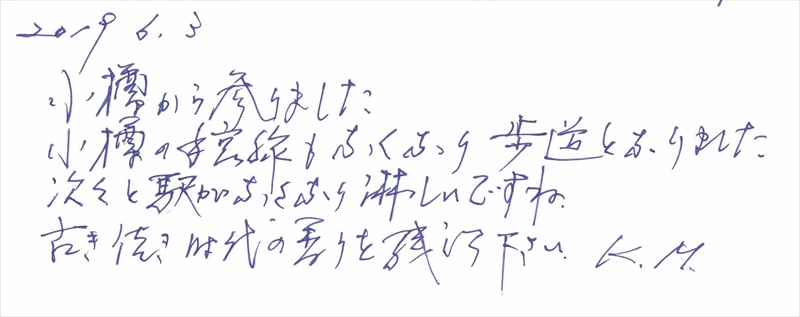 2019 6. 3
小樽から参りました
小樽の手宮線もなくなり 歩道となりました
次々と駅がなくなり淋しいですね。
古き良き時代の香りを残し下さい K.M.